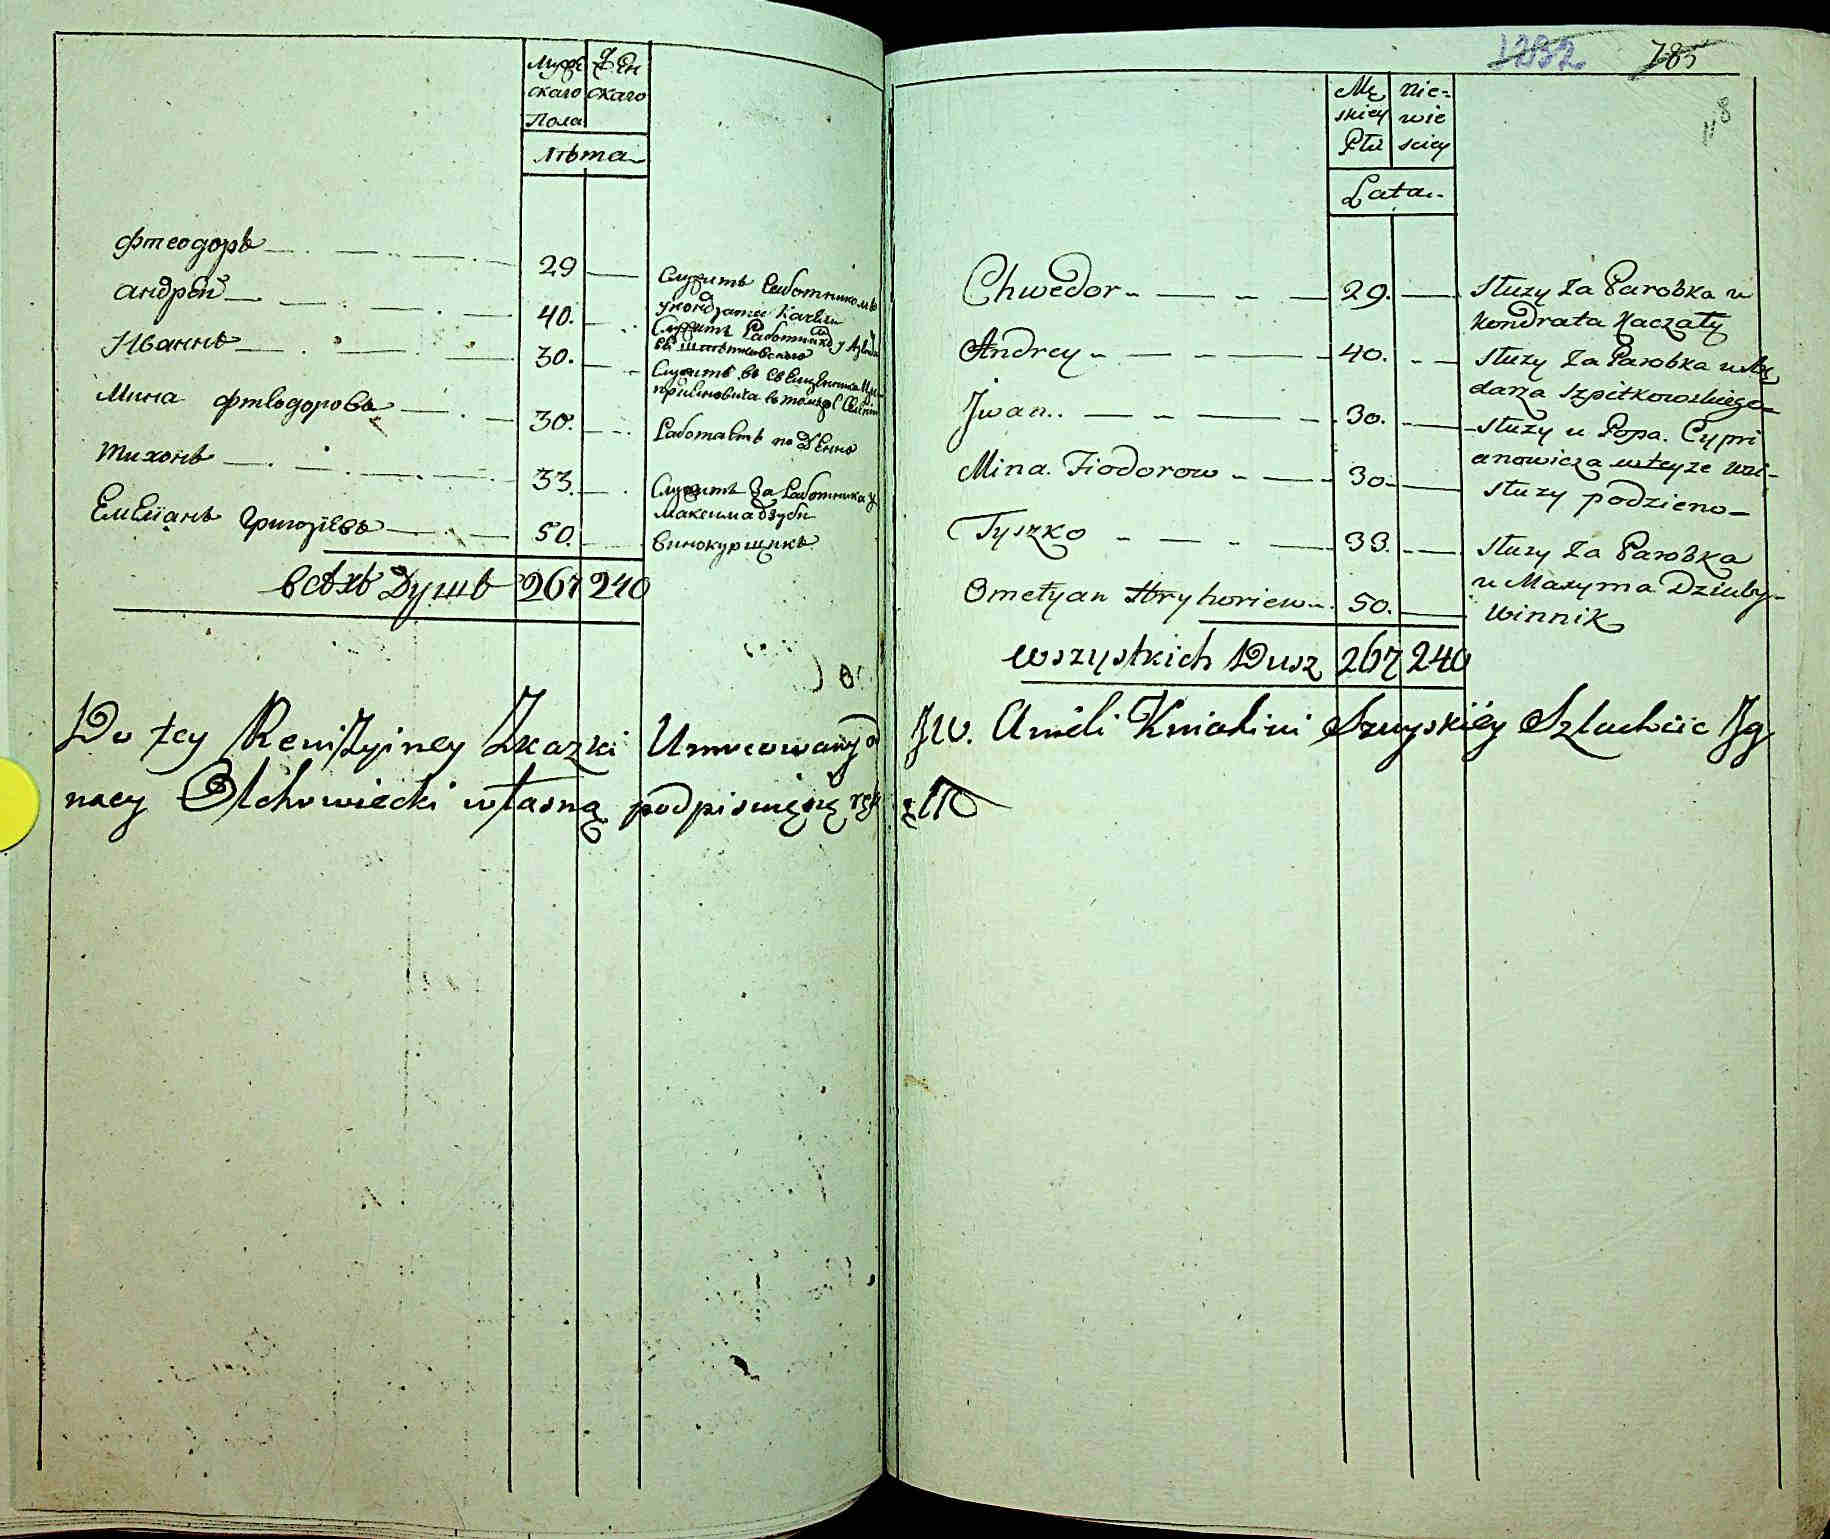 Мужс
скаго
Пола
Жен
скаго
лѣта
Фтеодоръ 29 Служитъ Работникомъ
у Кондрата Качалы
Андрей 40. Служитъ Работником у
Шпитковского
Иваннъ 30. Служитъ въ Священника
Мина Фтеодоровъ 30. Работаетъ по Денно
Тихонъ 33. Служитъ За Работника у
Максима Дзуби
Емелїанъ Григорїевъ 50. Винокурщикъ
всѣхъ Душъ 267 240
1232 785
Mę
skiey
Płci
Nie=
wie
sciey
Lata
Chwedor 29. służy za Parobka u
Kondrata Kaczały
Andrey 40. służy za Parobka u
darza Szpitkowskiego
Jwan 30. służy u Popa. Cypri
anowicza w teyze wsi
Mina Fiodorow 30 służy podzieno
Tyszko 33. służy za Parobka
u Maxyma Dziuby
Omelyan Hryhoriew 50. Winnik
wszystkich Dusz 267 240
Do tey Rewizyiney Skazki Umocowany od JW. Anieli Szuyskiéy Szlachcic Jg
nacy Olchowiecki własną podpisuię się ręką